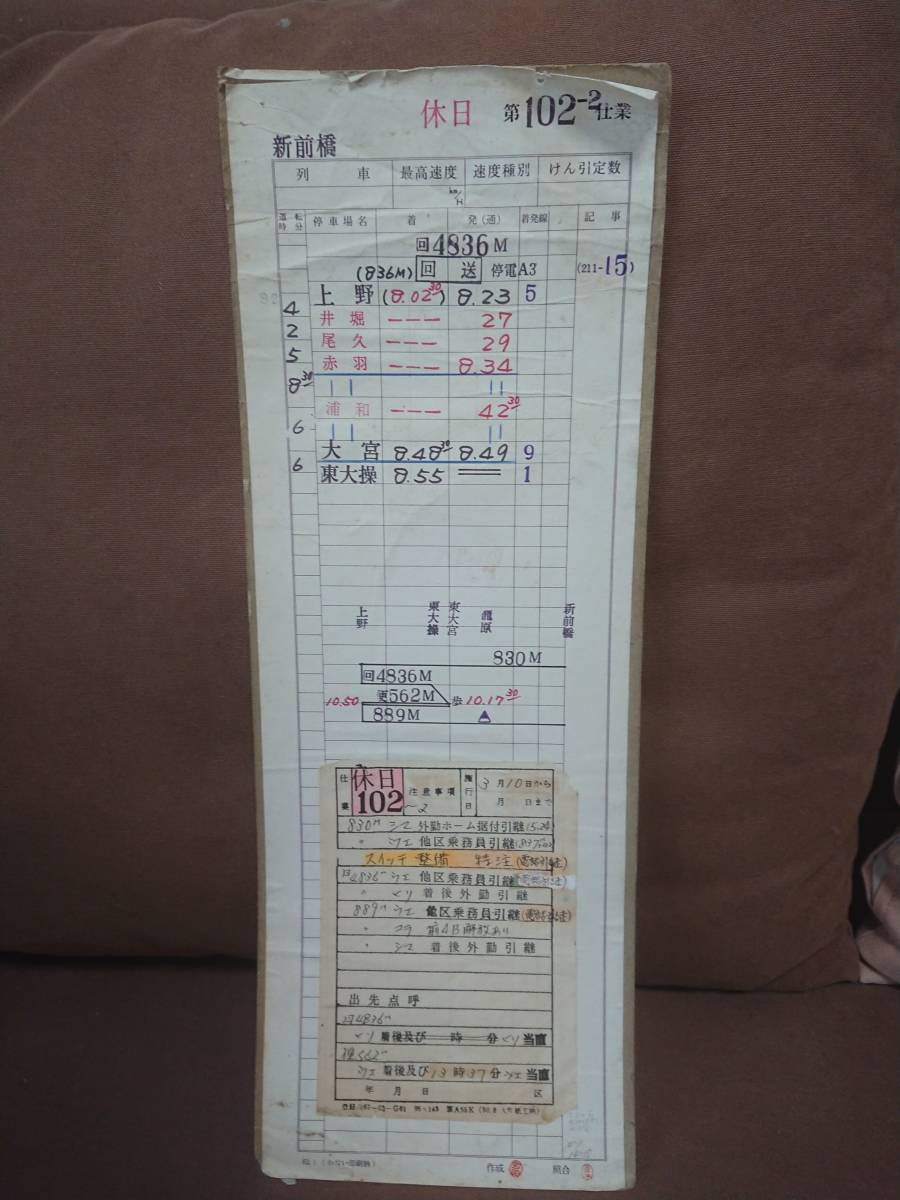 休日 第102-2仕業
新前橋
列車 最高速度 速度種別 けん引定数
km/H
運転時分 停車場名 着 発(通) 着発線 記事
回4836M
(836M) 回送 停電A3 (211-15)
上野 (8.02³⁰) 8.23 5
4
井堀 --- 27
2
尾久 --- 29
5
赤羽 --- 8.34
8³⁰ || ||
浦和 --- 42³⁰
6 || ||
大宮 8.48³⁰ 8.49 9
6
東大操 8.55 == 1
上野 東大操 東大宮 籠原 新前橋
830M
回4836M
562M
10.50 歩 10.17³⁰
889M
仕業 休日 102 ~2 注意事項 施行日 3月10日から 月日まで
830M シマ 外勤ホーム据付引継(5.20)
〃 ウエ 他区乗務員引継
スイッチ整備 特注
回4836M ウエ 他区乗務員引継
〃 くり 着後外勤引継
889M ウエ 他区乗務員引継
〃 コラ 前4B解放あり
〃 シマ 着後外勤引継
出先点呼
回4836M
くり 着後及び 時 分 くり 当直
562M
ウエ 着後及び13時37分 ウエ 当直
年 月 日 区
作成 照合